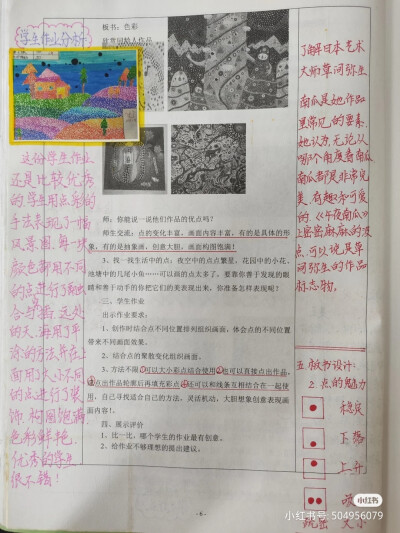 学生作业分析
板书：色彩
欣赏同龄人作品
师：你能说一说他们作品的优点吗？
师生交流：点的变化丰富，画面内容丰富，有的是具体的形
象，有的是抽象画，创意大胆，画面构图饱满！
3、找一找生活中的点：夜空中的点点繁星，花园中的小花，
池塘中的几尾小鱼……可以画的点太多了，要靠你善于发现的眼
睛和善于动手的你把它们的美表现出来，你准备怎样表现呢？
三、学生作业
出示作业要求：
1、创作时结合点不同位置排列组织画面，体会点的不同位置
带来不同画面效果。
2、结合点的聚散变化组织画面。
3、方法不限①可以大小彩点结合使用②也可以直接点出作品，
③点出作品轮廓后再填充彩点④还可以和线条互相结合在一起使
用，自己寻找适合自己的方法，灵活机动，大胆想象创意表现画
面内容!。
四、展示评价
1、比一比，哪个学生的作业最有创意。
2、给作业不够理想的提出建议。
- 6 -
这份学生作业
还是比较优秀
的，学生用点彩的
手法表现了一幅
风景图，每一块
颜色都用不同
的点进行了融
合与叠加，远处
的天、海用了平
涂的方法并在上
面用了大小不同
的点进行了装
饰，构图饱满，
色彩鲜艳，
优秀的学生
很不错！
了解日本艺术
大师草间弥生
南瓜是她作品
里常见的要素，
她认为，无论从
哪个角度看南瓜，
南瓜都是非常完
美、有趣和可爱
的，《午夜南瓜》
上密密麻麻的波
点，可以说是草
间弥生的作品
标志物。
五、板书设计：
2. 点的魅力
稳定
下落
上升
小红书
小红书号：504956079